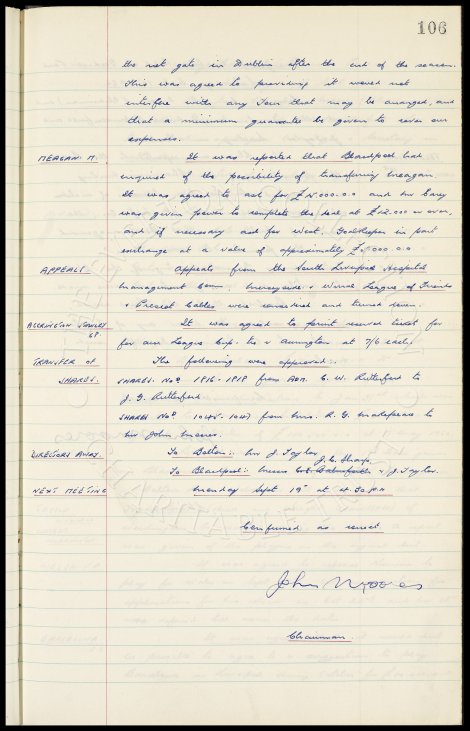 106
the net gate in Dublin after the end of the season.
This was agreed to providing it would not
interfere with any Tour that may be arranged, and
that a minimum guarantee be given to cover our
expenses.
MEAGAN. M. It was reported that Blackpool had
enquired of the possibility of transferring Meagan.
It was agreed to ask for £15.000.0.0 and Mr Carey
was given power to complete the deal at £12.000 or over,
and if necessary ask for West, Goalkeeper in part
exchange at a value of approximately 000.0.0
APPEALS Appeals from the South Liverpool Hospital
Management Comm, Merseyside & Wirral League of Friends
& Present Cables were considered and turned down.
ACCRINGTON STANLEY It was agreed to print reserved ticket for
for our League Cup tie v Accrington at 7/6 each.
TRANSFER OF The following were approved:.
SHARES. SHARES. Nos 1816-1818 from C. W. Rutherford to
J. G. Rutherford.
SHARES Nos 1045-1047 from Mrs. R. G. Makepeace to
Mr John Moores.
DIRECTORS AWAY. To Bolton:. Mr J. Taylor
J. C. Sharp
To Blackpool:. Messrs & J. Taylor.
NEXT MEETING Monday Sept 19th at 4.30 pm
Confirmed as correct
John Moores
Chairman.